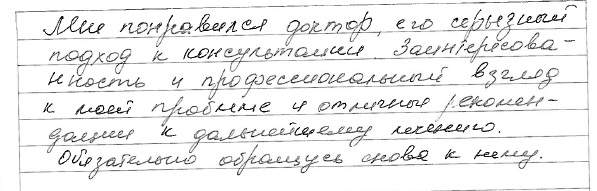 Мне понравился доктор, его серьезный
подход к консультации. Заинтересова-
нность и профессиональный взгляд
к моей проблеме и отличные рекомен-
дации к дальнейшему лечению.
Обязательно обращусь снова к нему.